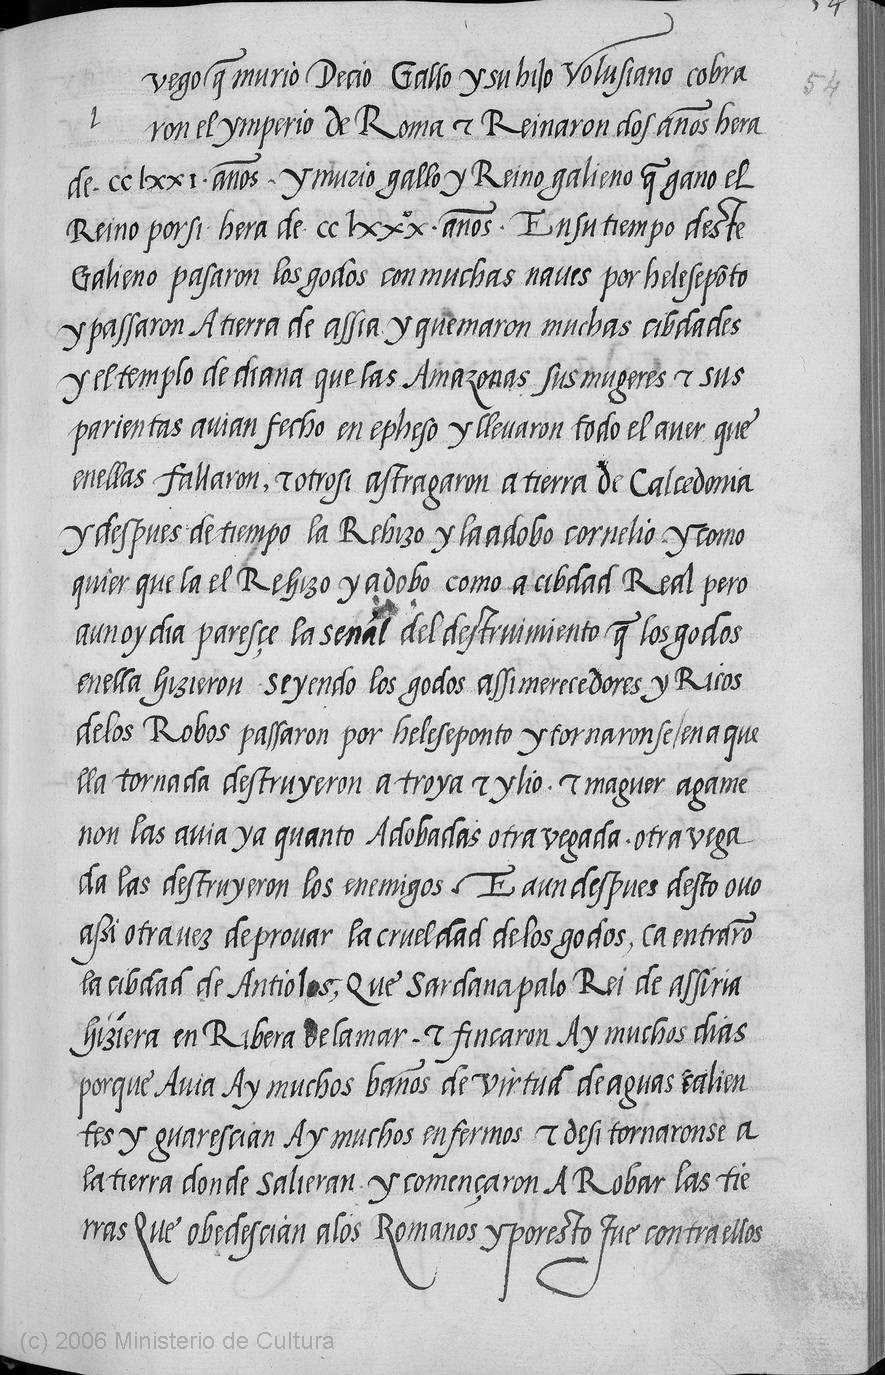 54
54
vego q̃ murio Decio Gallo y su hijo Volusiano cobra
l ron el ymperio de Roma τ Reinaron dos años hera
de. cclxxi. años. y murio gallo y Reino galieno q̃ gano el
Reino por si hera de cclxxºx. años. En su tiempo deste
Galieno pasaron los godos con muchas naves por helesepõto
y passaron A tierra de assia y quemaron muchas cibdades
y el templo de diana que las Amazonas sus mugeres τ sus
parientas avian fecho en epheso y llevaron todo el aver que
en ellas fallaron, τ otrosi astragaron a tierra de Calcedonia
y despues de tiempo la Rehizo y la adobo cornelio y como
quier que la el Rehizo y adobo como a cibdad Real pero
aun oy dia paresçe la señal del destruimiento q̃ los godos
en ella hizieron seyendo los godos assi merecedores y Ricos
de los Robos passaron por heleseponto y tornaronse/en aque
lla tornada destruyeron a troya τ ylio. τ maguer agame
non las avia ya quanto Adobadas otra vegada. otra vega
da las destruyeron los enemigos. E aun despues desto ovo
assi otra vez de provar la crueldad de los godos, ca entrarõ
la cibdad de Antiolos, Que Sardanapalo Rei de assiria
hiziera en Ribera de la mar - τ fincaron Ay muchos dias
porque Avia Ay muchos baños de virtud de aguas calien
tes y guarescian Ay muchos enfermos τ desi tornaronse a
la tierra donde salieran y començaron A Robar las tie
rras Que obedescian a los Romanos y por esto fue contra ellos
(c) 2006 Ministerio de Cultura